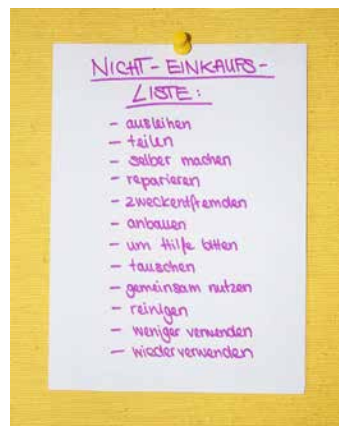 NICHT-EINKAUFS-
LISTE:
- ausleihen
- teilen
- selber machen
- reparieren
- zweckentfremden
- anbauen
- um Hilfe bitten
- tauschen
- gemeinsam nutzen
- reinigen
- weniger verwenden
- wieder verwenden